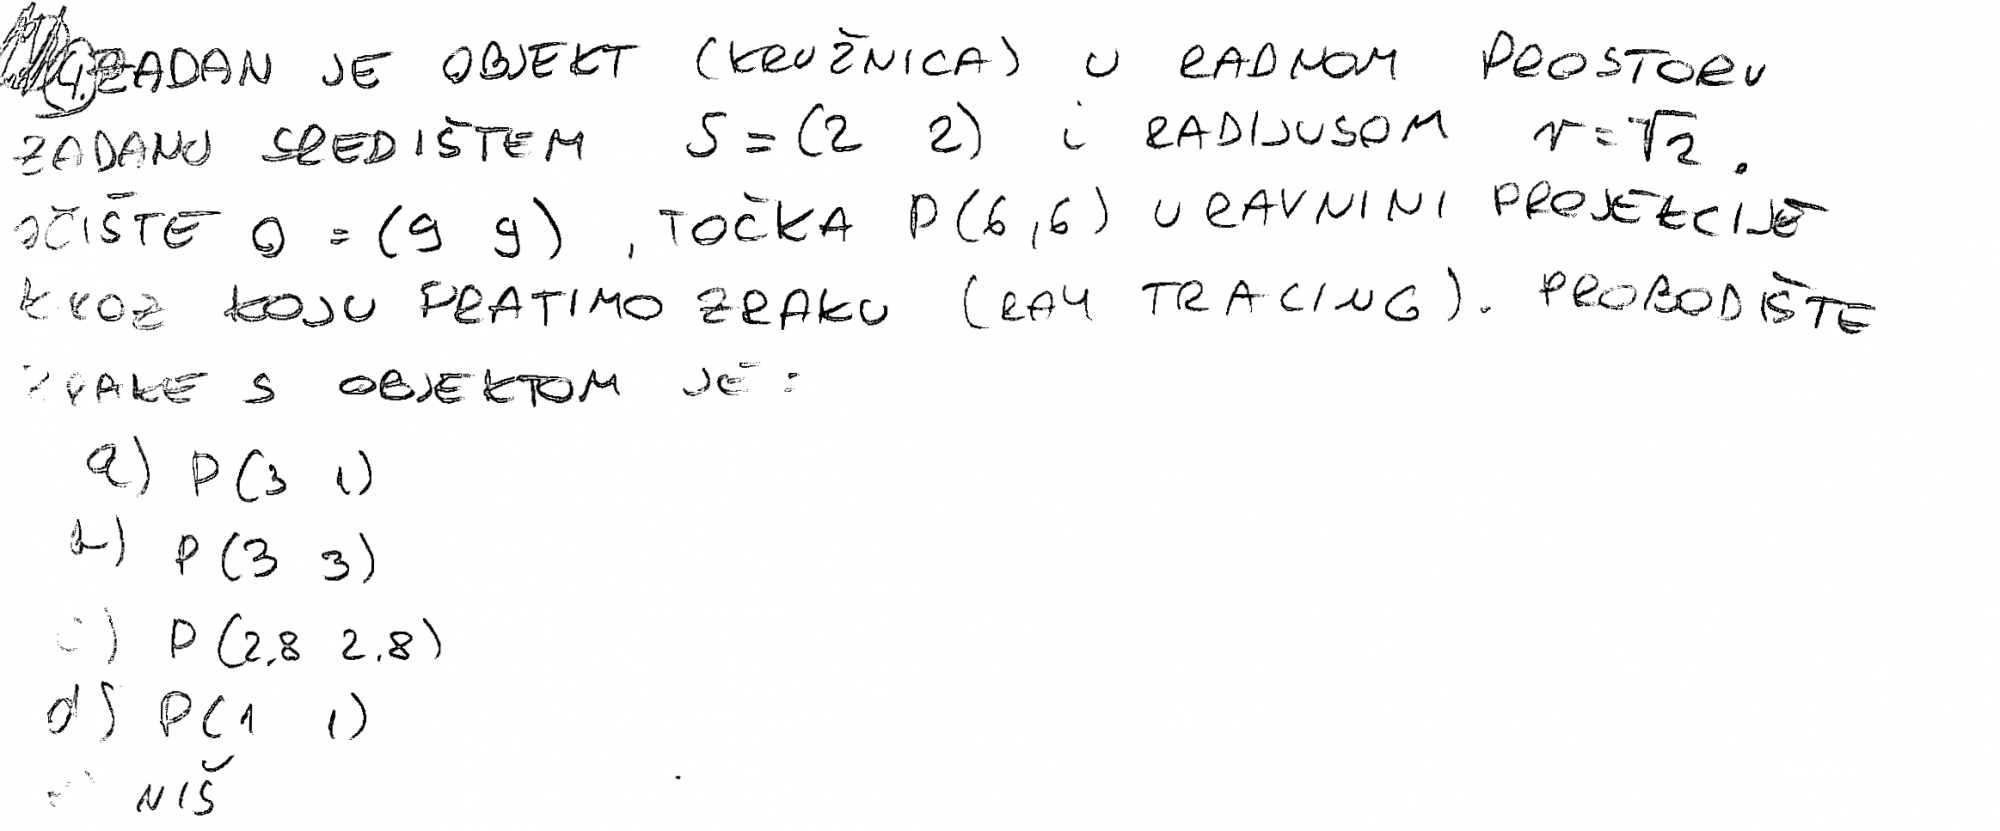 4. ZADAN JE OBJEKT (KRUŽNICA) U RADNOM PROSTORU
ZADANU SREDIŠTEM S = (2 2) i RADIJUSOM r = √2 .
OČIŠTE O = (9 9) , TOČKA P(6,6) U RAVNINI PROJEKCIJE
KROZ KOJU PRATIMO ZRAKU (RAY TRACING). PROBODIŠTE
ZRAKE S OBJEKTOM JE :
a) P(3 1)
b) P(3 3)
c) P(2.8 2.8)
d) P(1 1)
e) NIŠ